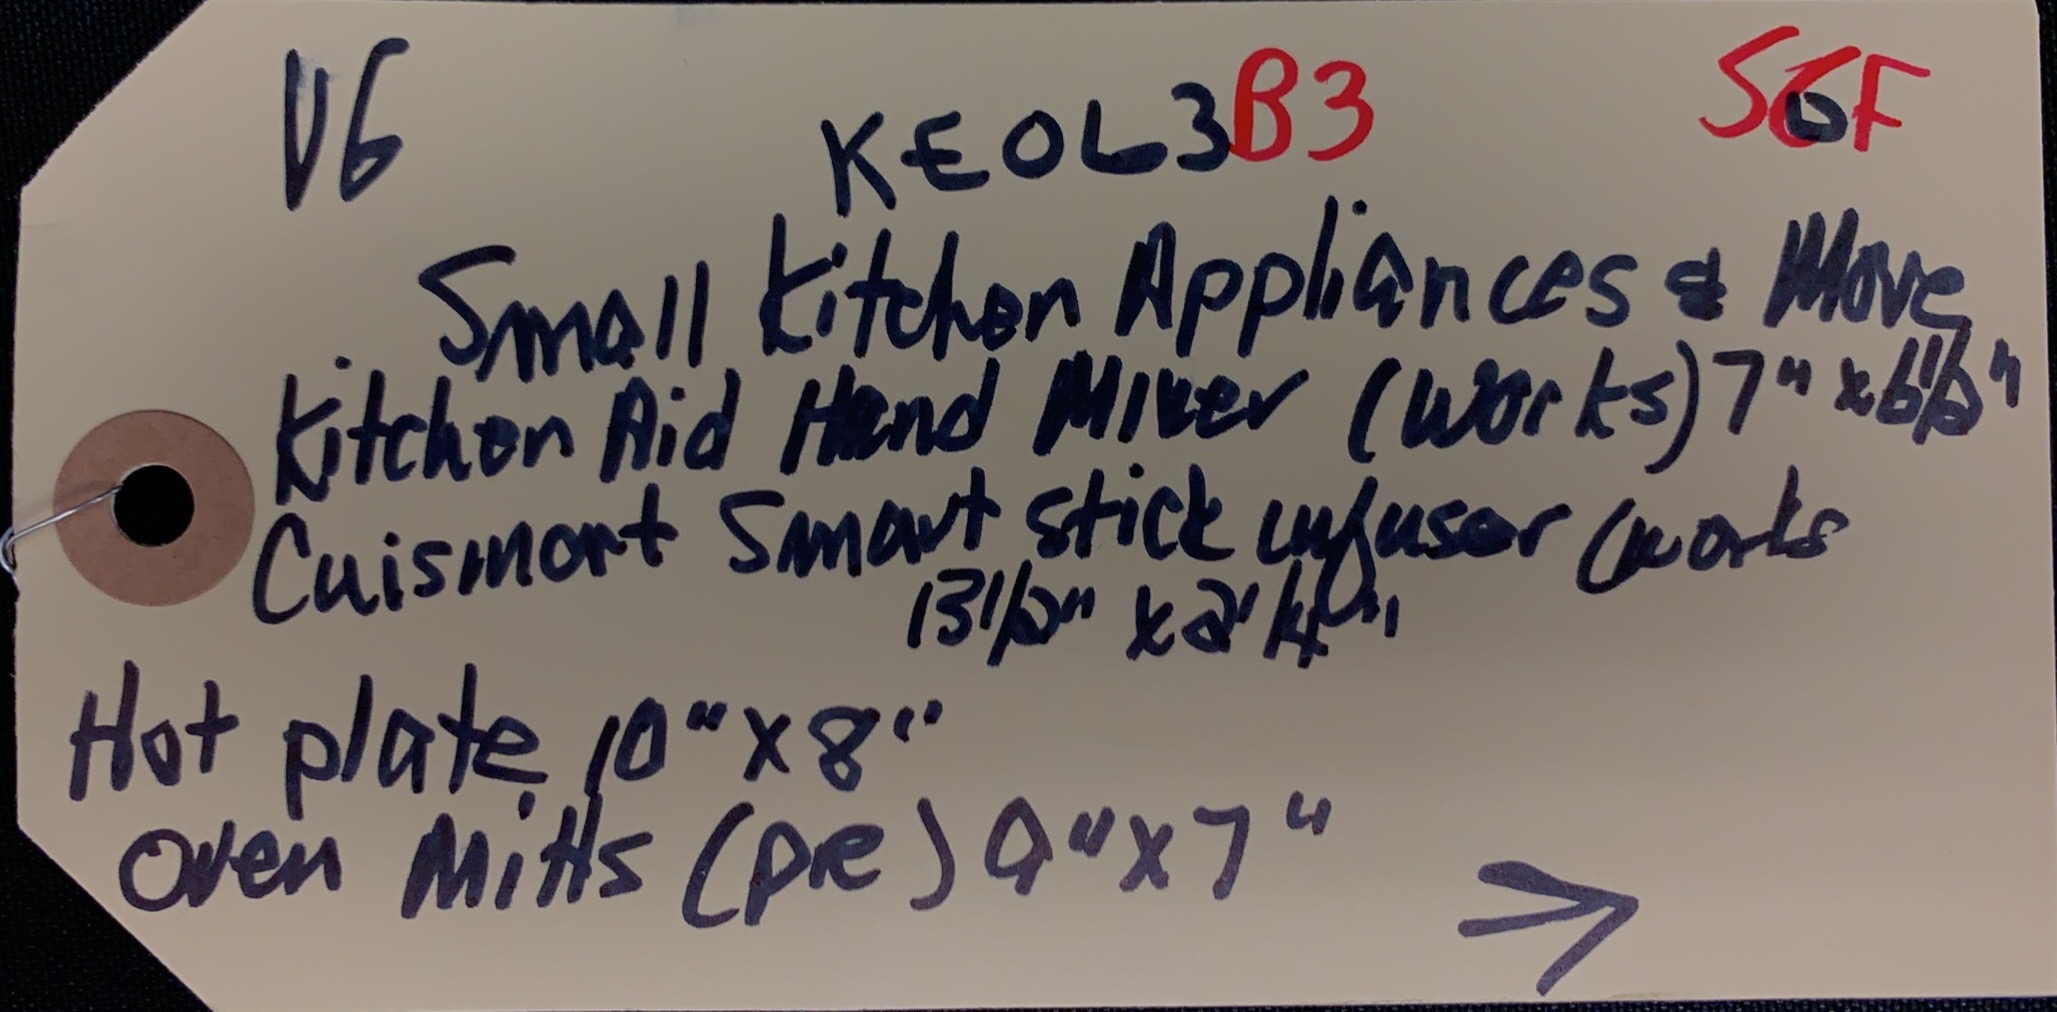 V6 KEOL3 B3 SGF
Small Kitchen Appliances & More
Kitchen Aid Hand Mixer (works) 7" x 6 1/2"
Cuismart Smart stick infuser (works
13 1/2" x 2 1/4"
Hot plate 10" x 8"
Oven Mitts (pr) 9" x 7"
→